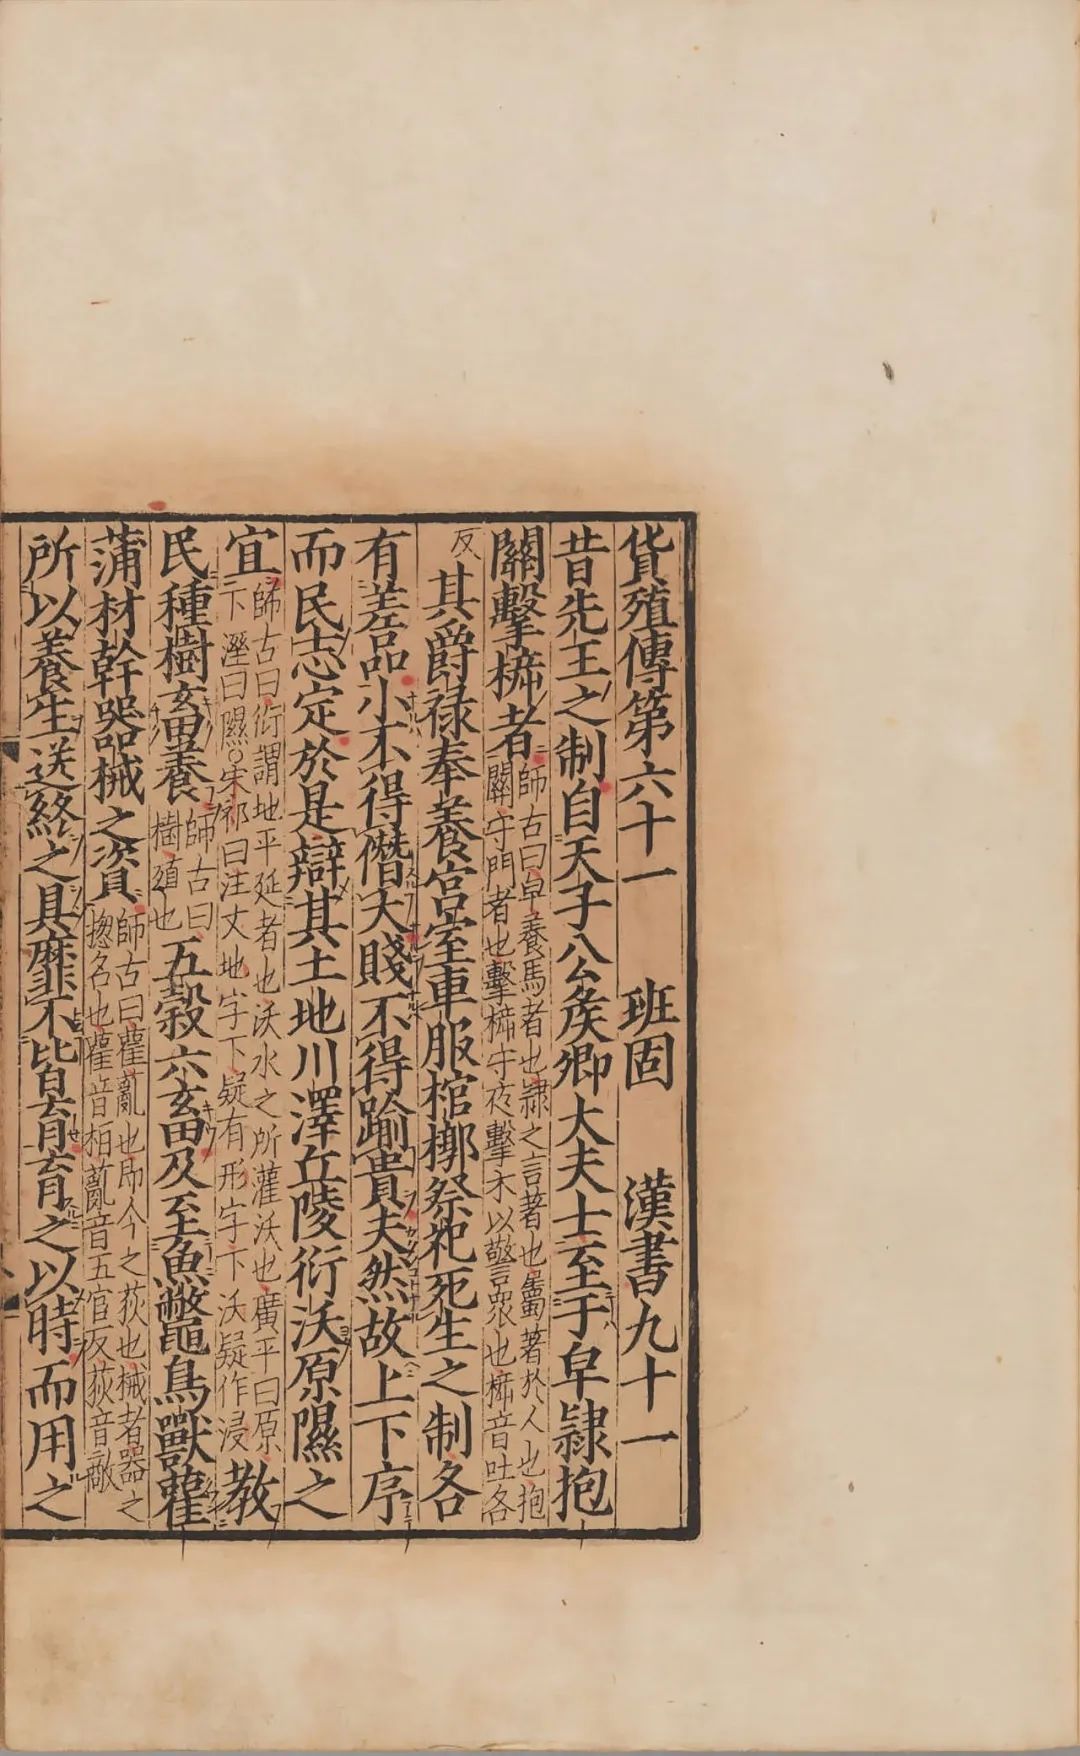 貨殖傳第六十一　班固　漢書九十一
昔先王之制自天子公侯卿大夫士至于皁隸抱
關擊𣔳者師古曰皁養馬者也隸之言著也屬著於人也抱關守門者也擊𣔳守夜擊木以警衆也𣔳音吐各
反其爵祿奉養宮室車服棺槨祭祀死生之制各
有差品小不得僭大賤不得踰貴夫然故上下序
而民志定於是辯其土地川澤丘陵衍沃原隰之
宜師古曰衍謂地平延者也沃水之所灌沃也廣平曰原下溼曰隰○宋祁曰注文地字下疑有形字下沃疑作浸教
民種樹畜養師古曰樹殖也五穀六畜及至魚鼈鳥獸雚
蒲材幹器械之資師古曰雚薍也即今之荻也械者器之揔名也雚音桓薍音五宦反荻音敵
所以養生送終之具靡不皆育育之以時而用之